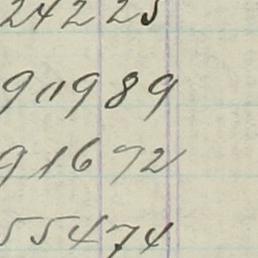 242 25
911989
91672
55474